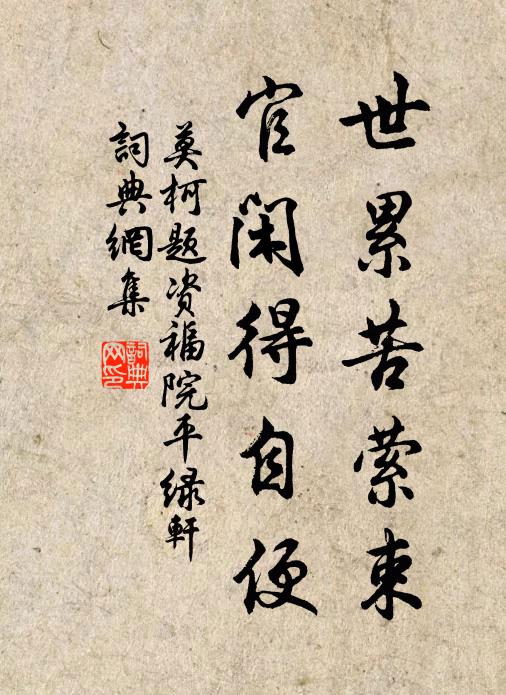 世累苦萦束
官闲得自便
莫柯题资福院平绿軒
詞典網集
詞典
网印